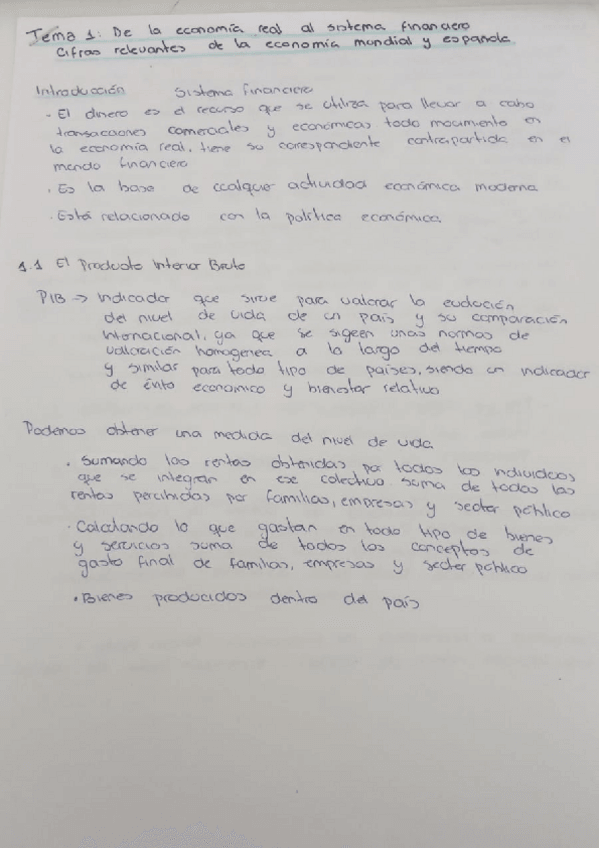 Tema 1: De la economía real al sistema financiero
Cifras relevantes de la economía mundial y española
Introducción Sistema financiero
· El dinero es el recurso que se utiliza para llevar a cabo
transacciones comerciales y económicas todo movimiento en
la economía real, tiene su correspondiente contrapartida en el
mundo financiero
· Es la base de cualquier actividad económica moderna
· Está relacionado con la política económica.
1.1 El Producto Interior Bruto
PIB → Indicador que sirve para valorar la evolución
del nivel de vida de un país y su comparación
internacional, ya que se sigeen unas normas de
valoración homogenea a lo largo del tiempo
y similar para todo tipo de países, siendo un indicador
de éxito economico y bienestar relativo
Podemos obtener una medida del nivel de vida
· Sumando las rentas obtenidas por todos los individuos
que se integran en ese colectivo suma de todas las
rentas percibidas por familias, empresas y sector público
· Calculando lo que gastan en todo tipo de bienes
y servicios suma de todos los conceptos de
gasto final de familias, empresas y sector público
· Bienes producidos dentro del país